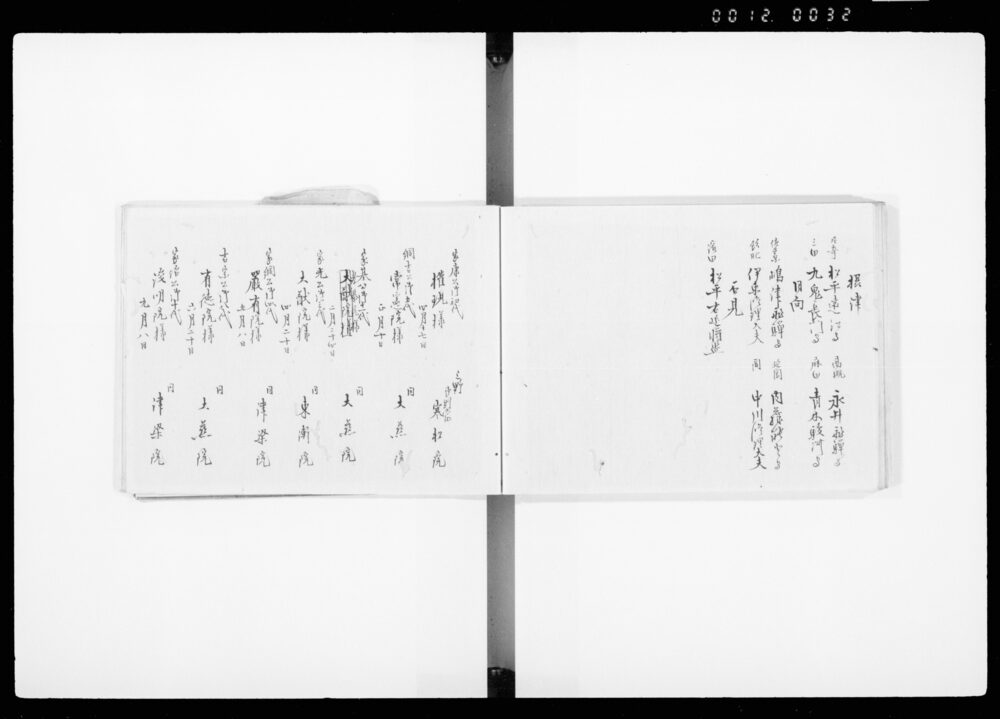 0012 0032
摂津
尼崎 松平遠江守 高槻 永井飛騨守
三田 九鬼長門守 麻田 青木駿河守
日向
佐土原 嶋津飛騨守 延岡 内藤能登守
飫肥 伊東修理大夫 岡 中川修理大夫
石見
濱田 松平右近将監
家康公御初代
権現様 上野 寒松院
四月十七日
綱吉公御五代
常憲院様 同 大慈院
正月十日
家基公御
同 大慈院
二月二十四日
家光公御三代
大猷院様 同 東南院
四月二十日
家綱公御四代
嚴有院様 同 津梁院
五月八日
吉宗公御八代
有徳院様 同 大慈院
六月二十日
家治公御十代
浚明院様 同 津梁院
九月八日